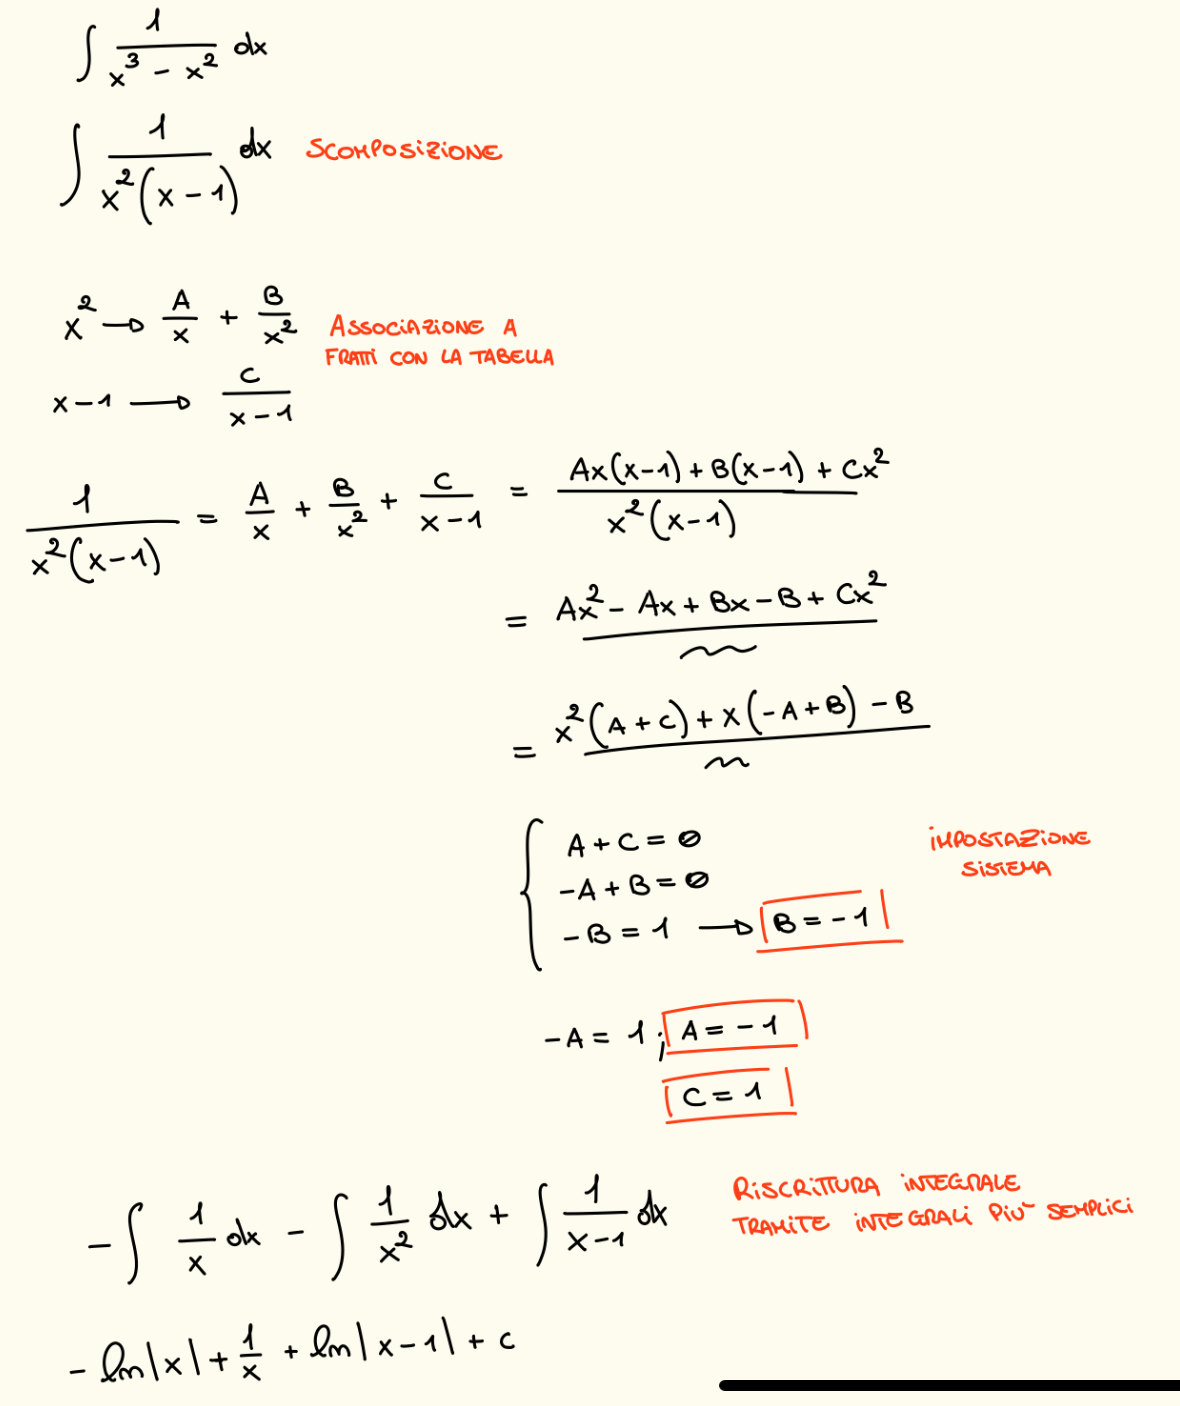 ∫ 1/(x³ - x²) dx
∫ 1/(x²(x-1)) dx SCOMPOSIZIONE
x² → A/x + B/x² ASSOCIAZIONE A
FRATTI CON LA TABELLA
x-1 → C/(x-1)
1/(x²(x-1)) = A/x + B/x² + C/(x-1) = (Ax(x-1) + B(x-1) + Cx²)/(x²(x-1))
= Ax² - Ax + Bx - B + Cx²
= x²(A+C) + x(-A+B) - B
A + C = 0 IMPOSTAZIONE
-A + B = 0 SISTEMA
-B = 1 → B = -1
-A = 1; A = -1
C = 1
-∫ 1/x dx - ∫ 1/x² dx + ∫ 1/(x-1) dx RISCRITTURA INTEGRALE
TRAMITE INTEGRALI PIÙ SEMPLICI
- ln|x| + 1/x + ln|x-1| + c